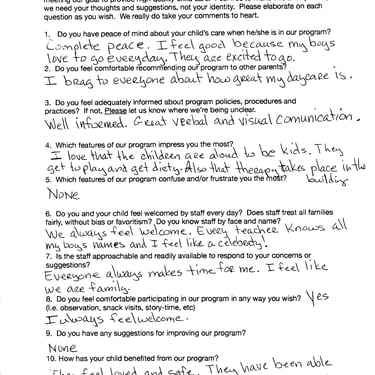 we need your thoughts and suggestions, not your identity. Please elaborate on each
question as you wish. We really do take your comments to heart.
1. Do you have peace of mind about your child's care when he/she is in our program?
Complete peace. I feel good because my boys
love to go everyday. They are excited to go.
2. Do you feel comfortable recommending our program to other parents?
I brag to everyone about how great my daycare is.
3. Do you feel adequately informed about program policies, procedures and
practices? If not, Please let us know where we're being unclear.
Well informed. Great verbal and visual comunication.
4. Which features of our program impress you the most?
I love that the children are aloud to be kids. They
get to play and get diety. Also that therapy takes place in the
building
5. Which features of our program confuse and/or frustrate you the most?
None
6. Do you and your child feel welcomed by staff every day? Does staff treat all families
fairly, without bias or favoritism? Do you know staff by face and name?
We always feel welcome. Every teacher knows all
my boys names and I feel like a celebrety!
7. Is the staff approachable and readily available to respond to your concerns or
suggestions?
Everyone always makes time for me. I feel like
we are family.
8. Do you feel comfortable participating in our program in any way you wish? Yes
(i.e. observation, snack visits, story-time, etc)
I always feel welcome.
9. Do you have any suggestions for improving our program?
None
10. How has your child benefited from our program?
They feel loved and safe. They have been able